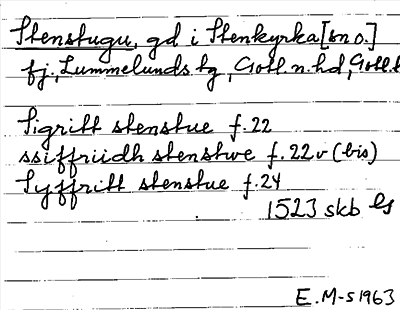 Stenstugu, gd i Stenkyrka [sn o.]
fj., Lummelunds tg, Gotl. n. hd, Gotl. l
Sigritt stenstue f. 22
ssiffriidh stenstwe f. 22 v (bis)
Syffritt stenstue f. 24
1523 skb ls
E. M-s 1963